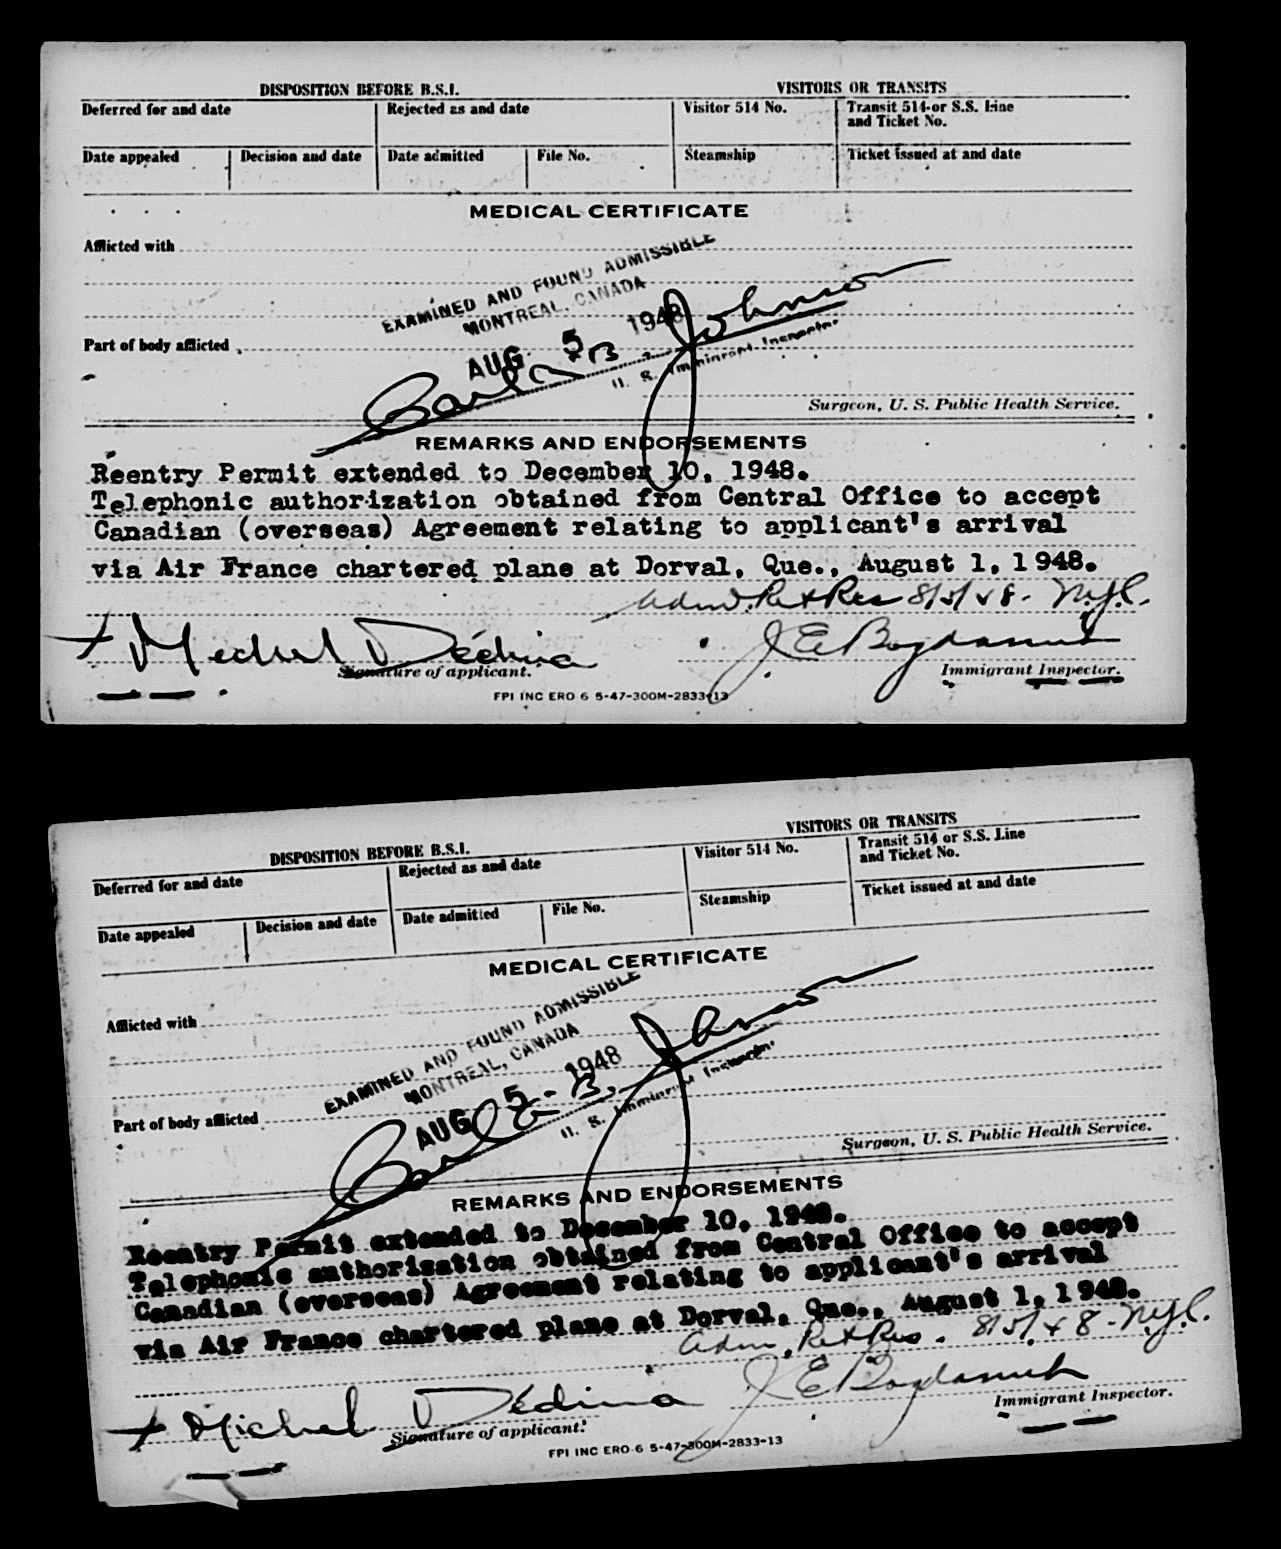 DISPOSITION BEFORE B.S.I.
VISITORS OR TRANSITS
Deferred for and date
Rejected as and date
Visitor 514 No.
Transit 514 or S.S. Line
and Ticket No.
Date appealed
Decision and date
Date admitted
File No.
Steamship
Ticket issued at and date
MEDICAL CERTIFICATE
Afflicted with
EXAMINED AND FOUND ADMISSIBLE
MONTREAL, CANADA
AUG 5 1948
Carl B. Johnson
U. S. Immigrant Inspector
Part of body afflicted
Surgeon, U. S. Public Health Service.
REMARKS AND ENDORSEMENTS
Reentry Permit extended to December 10, 1948.
Telephonic authorization obtained from Central Office to accept
Canadian (overseas) Agreement relating to applicant's arrival
via Air France chartered plane at Dorval, Que., August 1, 1948.
Adm. Ret Res 8/5/48. N.Y.C.
Michel Dédina
Signature of applicant.
Immigrant Inspector.
FPI INC ERO 6 5-47-300M-2833-13
DISPOSITION BEFORE B.S.I.
VISITORS OR TRANSITS
Deferred for and date
Rejected as and date
Visitor 514 No.
Transit 514 or S.S. Line
and Ticket No.
Date appealed
Decision and date
Date admitted
File No.
Steamship
Ticket issued at and date
MEDICAL CERTIFICATE
Afflicted with
EXAMINED AND FOUND ADMISSIBLE
MONTREAL, CANADA
AUG 5 - 1948
Carl B. Johnson
U. S. Immigrant Inspector
Part of body afflicted
Surgeon, U. S. Public Health Service.
REMARKS AND ENDORSEMENTS
Reentry Permit extended to December 10, 1948.
Telephonic authorization obtained from Central Office to accept
Canadian (overseas) Agreement relating to applicant's arrival
via Air France chartered plane at Dorval, Que., August 1, 1948.
Adm. Ret Res. 8/5/48 - N.Y.C.
Michel Dédina
Signature of applicant.
Immigrant Inspector.
FPI INC ERO 6 5-47-300M-2833-13